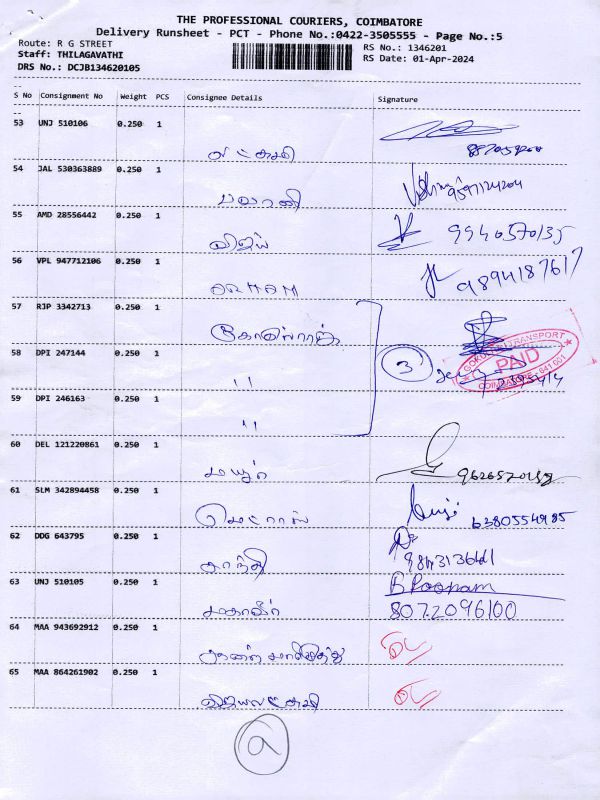 THE PROFESSIONAL COURIERS, COIMBATORE
Delivery Runsheet - PCT - Phone No.:0422-3505555 - Page No.:5
Route: R G STREET RS No.: 1346201
Staff: THILAGAVATHI RS Date: 01-Apr-2024
DRS No.: DCJB134620105
S No Consignment No Weight PCS Consignee Details Signature
53 UNJ 510106 0.250 1
லட்சுமி
54 JAL 530363889 0.250 1
பவானி 9597124204
55 AMD 28556442 0.250 1
விஜய் 9940570135
56 VPL 947712106 0.250 1
9894187617
57 RJP 3342713 0.250 1
கோவிந்ராஜ்
58 DPI 247144 0.250 1
" 3
GOKULAM TRANSPORT
PAID
COIMBATORE - 641 001
59 DPI 246163 0.250 1
"
60 DEL 121220861 0.250 1
மயூர்
61 SLM 342894458 0.250 1
மெட்ராஸ் 6380554985
62 DDG 643795 0.250 1
சாந்தி
63 UNJ 510105 0.250 1 B Poonam
மகாவீர் 8072096100
64 MAA 943692912 0.250 1
DL
65 MAA 864261902 0.250 1
ஜெயலட்சுமி
a